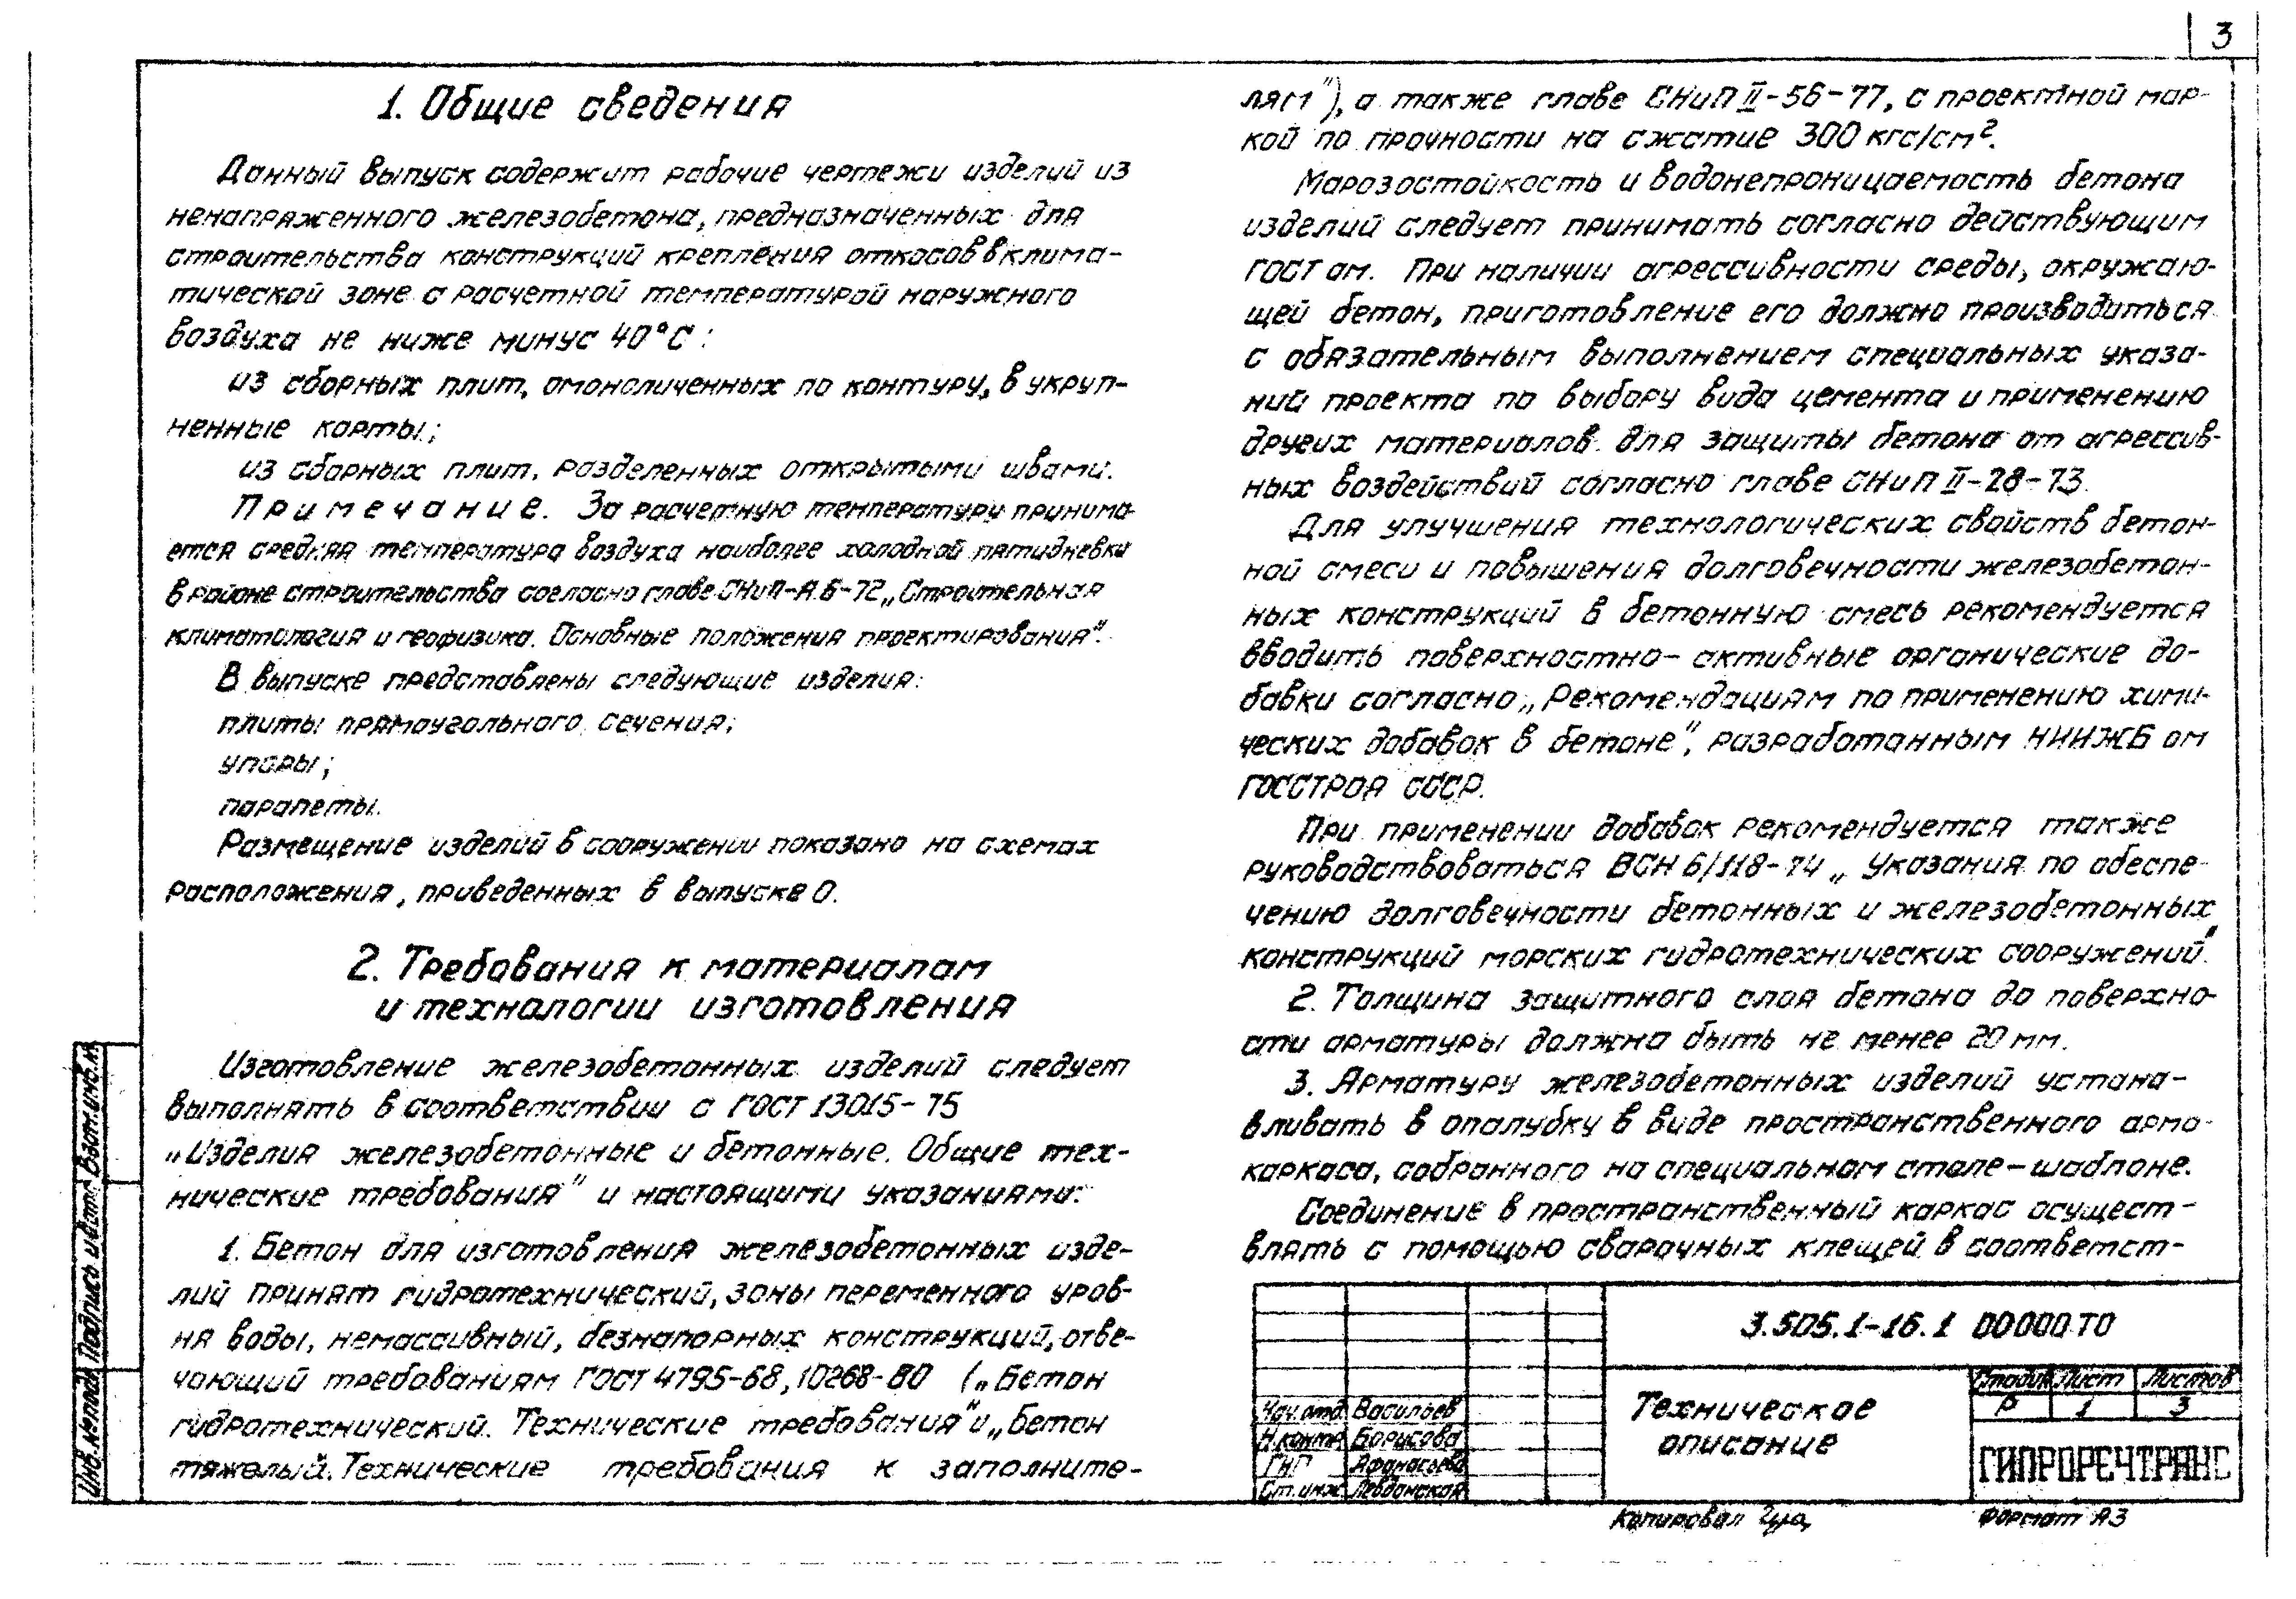 3
1. Общие сведения
Данный выпуск содержит рабочие чертежи изделий из
ненапряженного железобетона, предназначенных для
строительства конструкций крепления откосов в клима-
тической зоне с расчетной температурой наружного
воздуха не ниже минус 40°С:
из сборных плит, омоноличенных по контуру, в укруп-
ненные карты;
из сборных плит, разделенных открытыми швами.
Примечание. За расчетную температуру принима-
ется средняя температура воздуха наиболее холодной пятидневки
в районе строительства согласно главе СНиП-А.6-72 „Строительная
климатология и геофизика. Основные положения проектирования".
В выпуске представлены следующие изделия:
плиты прямоугольного сечения;
упоры;
парапеты.
Размещение изделий в сооружении показано на схемах
расположения, приведенных в выпуске 0.
2. Требования к материалам
и технологии изготовления
Изготовление железобетонных изделий следует
выполнять в соответствии с ГОСТ 13015-75
„Изделия железобетонные и бетонные. Общие тех-
нические требования" и настоящими указаниями:
1. Бетон для изготовления железобетонных изде-
лий принят гидротехнический, зоны переменного уров-
ня воды, немассивный, безнапорных конструкций, отве-
чающий требованиям ГОСТ 4795-68, 10268-80 („Бетон
гидротехнический. Технические требования" и „Бетон
тяжелый. Технические требования к заполните-
лям"), а также главе СНиП II-56-77, с проектной мар-
кой по прочности на сжатие 300 кгс/см².
Морозостойкость и водонепроницаемость бетона
изделий следует принимать согласно действующим
ГОСТам. При наличии агрессивности среды, окружаю-
щей бетон, приготовление его должно производиться
с обязательным выполнением специальных указа-
ний проекта по выбору вида цемента и применению
других материалов для защиты бетона от агрессив-
ных воздействий согласно главе СНиП II-28-73.
Для улучшения технологических свойств бетон-
ной смеси и повышения долговечности железобетон-
ных конструкций в бетонную смесь рекомендуется
вводить поверхностно-активные органические до-
бавки согласно „Рекомендациям по применению хими-
ческих добавок в бетоне", разработанным НИИЖБ ом
ГОССТРОЯ СССР.
При применении добавок рекомендуется также
руководствоваться ВСН 6/118-74 „Указания по обеспе-
чению долговечности бетонных и железобетонных
конструкций морских гидротехнических сооружений".
2. Толщина защитного слоя бетона до поверхно-
сти арматуры должна быть не менее 20 мм.
3. Арматуру железобетонных изделий устана-
вливать в опалубку в виде пространственного армо-
каркаса, собранного на специальном столе-шаблоне.
Соединение в пространственный каркас осущест-
влять с помощью сварочных клещей в соответст-
3.505.1-16.1 00000 ТО
Техническое
описание
Стадия Лист Листов
Р 1 3
ГИПРОРЕЧТРАНС
Нач.отд. Васильев
Н.контр. Борисова
ГИП Афанасьева
Ст.инж. Левданская
Копировал
Формат А3
Инв.№ подл. Подпись и дата Взам.инв.№